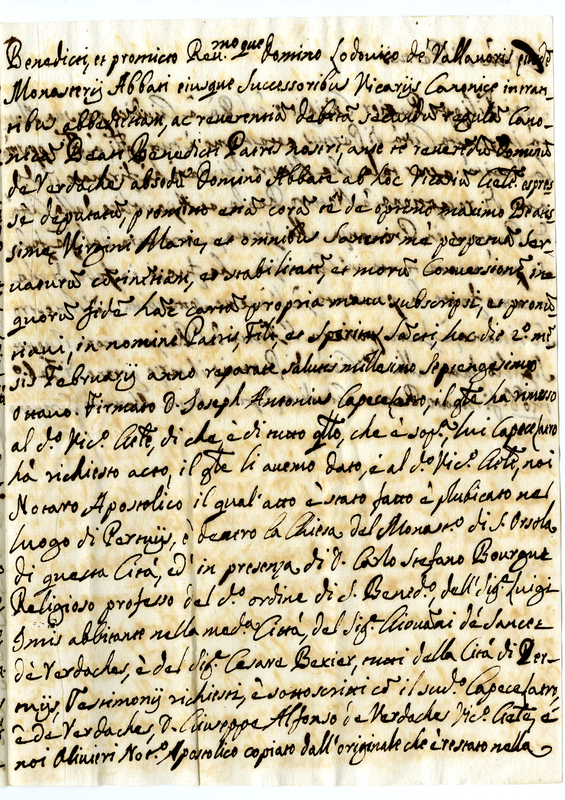 Benedicti, et promicto Reu.moque Domino Lodovico de Vallavoris eiusdē
Monasterij Abbati eiusque Successoribus Vicarijs Canonice intran
tibus obbedientiam, ac reverentiā debitā secundū regulā Cano
nicā Beati Benedicti Patris nostri, ante te reverendū Dominū
de Verdaches absolū Domino Abbate ab hoc Vicariū Gñle. espres
sè deputatū, promitto etiā corā te de optimo maximo Beatis
sime Virgini Marie, et omnibus Sanctis me perpetuā Ser
uaturū continētiam, et stabilitatē, et morū Conversionē, in
quorū fidē hāc cartā propria manu subscripsi, et pronū
tiaui, in nomine Patris, Filij, et Spiritus Sācti, hoc die 2.º mē
sis Februarij anno reparate salutis millesimo Septengesimo
ottauo. Firmato D. Joseph Antonius Capecelatro, il qle hà rimesso
al d.º Vic.º Gñle, di che, è di tutto qllo, che è sop.a lui Capecelatro
hà richiesto acto, il qle li auemo dato, è al d.º Vic.º Gñle, noi
Notaro Apostolico il qual'atto è stato fatto è plubicato nel
luogo di Pertuijs, è dentro la Chiesa del Monast.º di S. Orsola
di questa Cità, ed' in presenza di D. Carlo Stefano Bourgue
Religioso professo del d.º ordine di S. Bened.º, dell'Sig.r Luigi
Imis abbitante nella med.a Città, del Sig.r Giouāni de Sancet
de Verdaches, è del Sig.r Cesare Bexier, tutti della Cità di Per-
tuijs, Testimonij richiesti, è sottoscritti cō il sud.º Capecelatro,
è de Verdaches, D. Giuseppe Alfonso de Verdaches Vic.º Gñle, è
noi Olivieri Not.º Apostolico copiato dall'originale che è restato nella